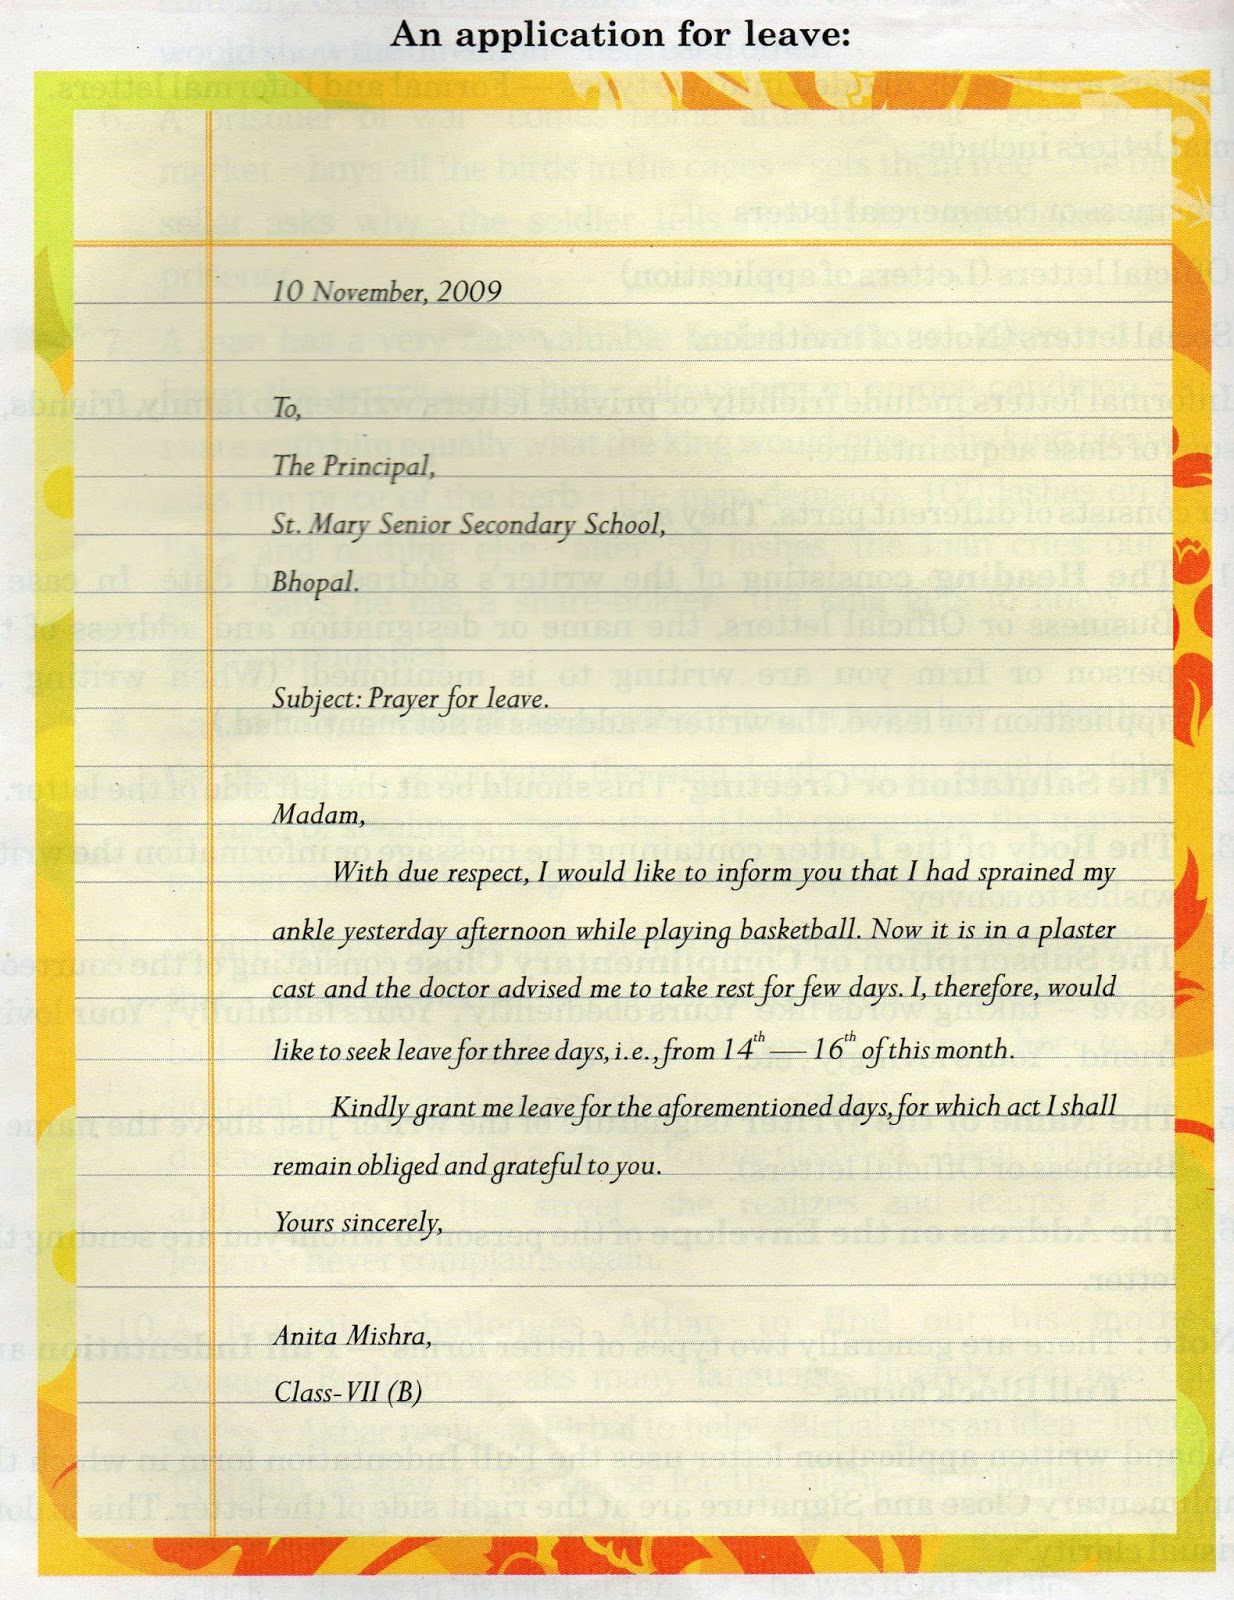 An application for leave:
10 November, 2009
To,
The Principal,
St. Mary Senior Secondary School,
Bhopal.
Subject: Prayer for leave.
Madam,
With due respect, I would like to inform you that I had sprained my
ankle yesterday afternoon while playing basketball. Now it is in a plaster
cast and the doctor advised me to take rest for few days. I, therefore, would
like to seek leave for three days, i.e., from 14th — 16th of this month.
Kindly grant me leave for the aforementioned days, for which act I shall
remain obliged and grateful to you.
Yours sincerely,
Anita Mishra,
Class-VII (B)